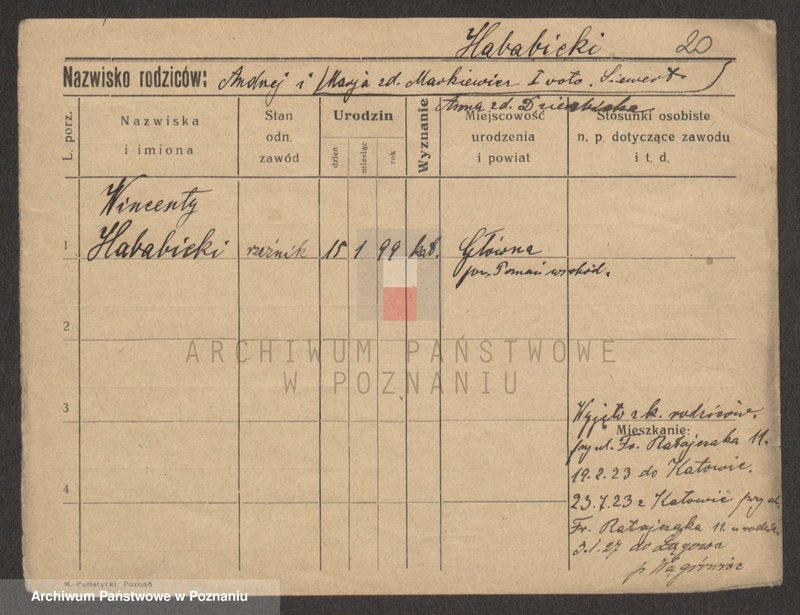 Hababicki 20
Nazwisko rodziców: Andrzej i (Marja zd. Markiewicz I voto. Siewert)
Anna zd.
L. porz.
Nazwiska
i imiona
Stan
odn.
zawód
Urodzin
dzień
miesiąc
rok
Wyznanie
Miejscowość
urodzenia
i powiat
Stosunki osobiste
n. p. dotyczące zawodu
i t. d.
Wincenty
1 Hababicki rzeźnik 15 1 99 kat. Główna
pow. Poznań wschód.
2
ARCHIWUM PAŃSTWOWE
W POZNANIU
3
Wyjęto z k. rodziców.
Mieszkanie:
przy ul. Fr. Ratajczaka 11.
19.2.23 do Katowic.
4
23.7.23 z Katowic przy ul.
Fr. Ratajczaka 11. u rodzic.
3.1.27 do Łągowa
p. Wągrówiec
M. Putiatycki, Poznań
Archiwum Państwowe w Poznaniu